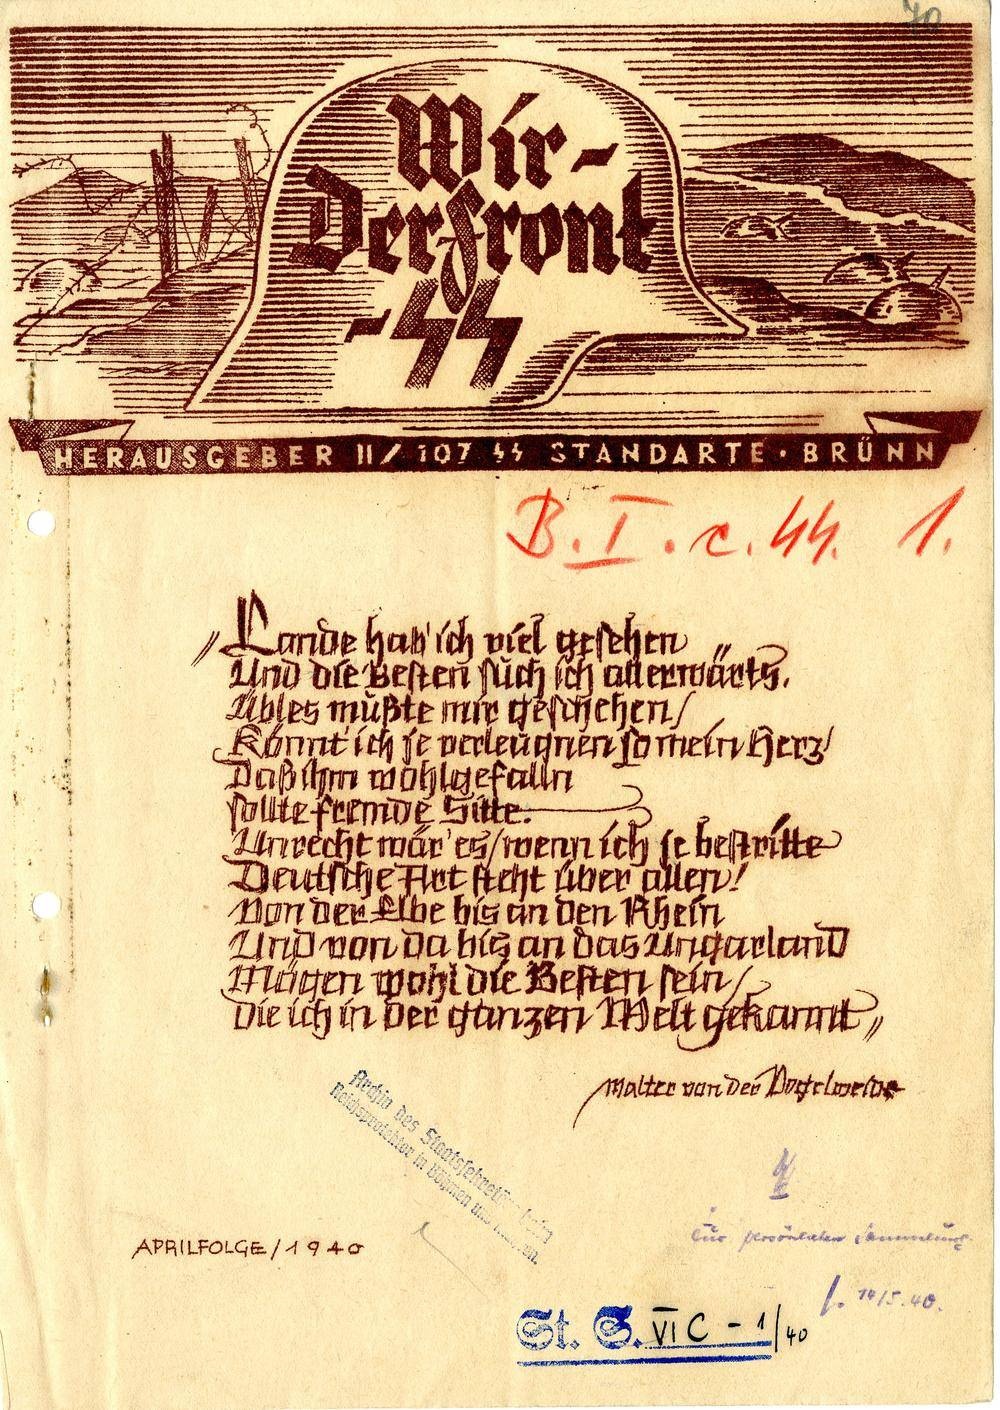 70
Wir-
Der Front
-SS
HERAUSGEBER II/107 SS STANDARTE · BRÜNN
B. I. c. SS. 1.
„Lande hab' ich viel gesehen
Und die Besten such ich allerwärts.
Übles müßte mir geschehen/
Könnt' ich je verleugnen so mein Herz/
Daß ihm wohlgefalln
sollte fremde Sitte.
Unrecht wär' es/wenn ich je bestritte
Deutsche Art steht über allen!
Von der Elbe bis an den Rhein
Und von da bis an das Ungarland
Mögen wohl die Besten sein/
die ich in der ganzen Welt gekannt„
Walter von der Vogelweide
Archiv des Staatssekretärs beim
Reichsprotektor in Böhmen und Mähren.
APRILFOLGE/1940
Zur persönlichen Sammlung
14/5.40.
St. S. VI C - 1/40